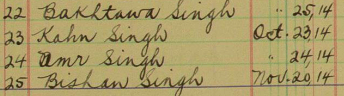 22 Bakhtawa Singh " 25, 14
23 Kahn Singh Oct. 23, 14
24 Amr Singh " 24, 14
25 Bishan Singh Nov. 20, 14